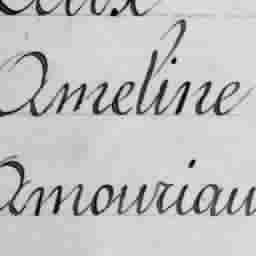 Ameline
Amouriau